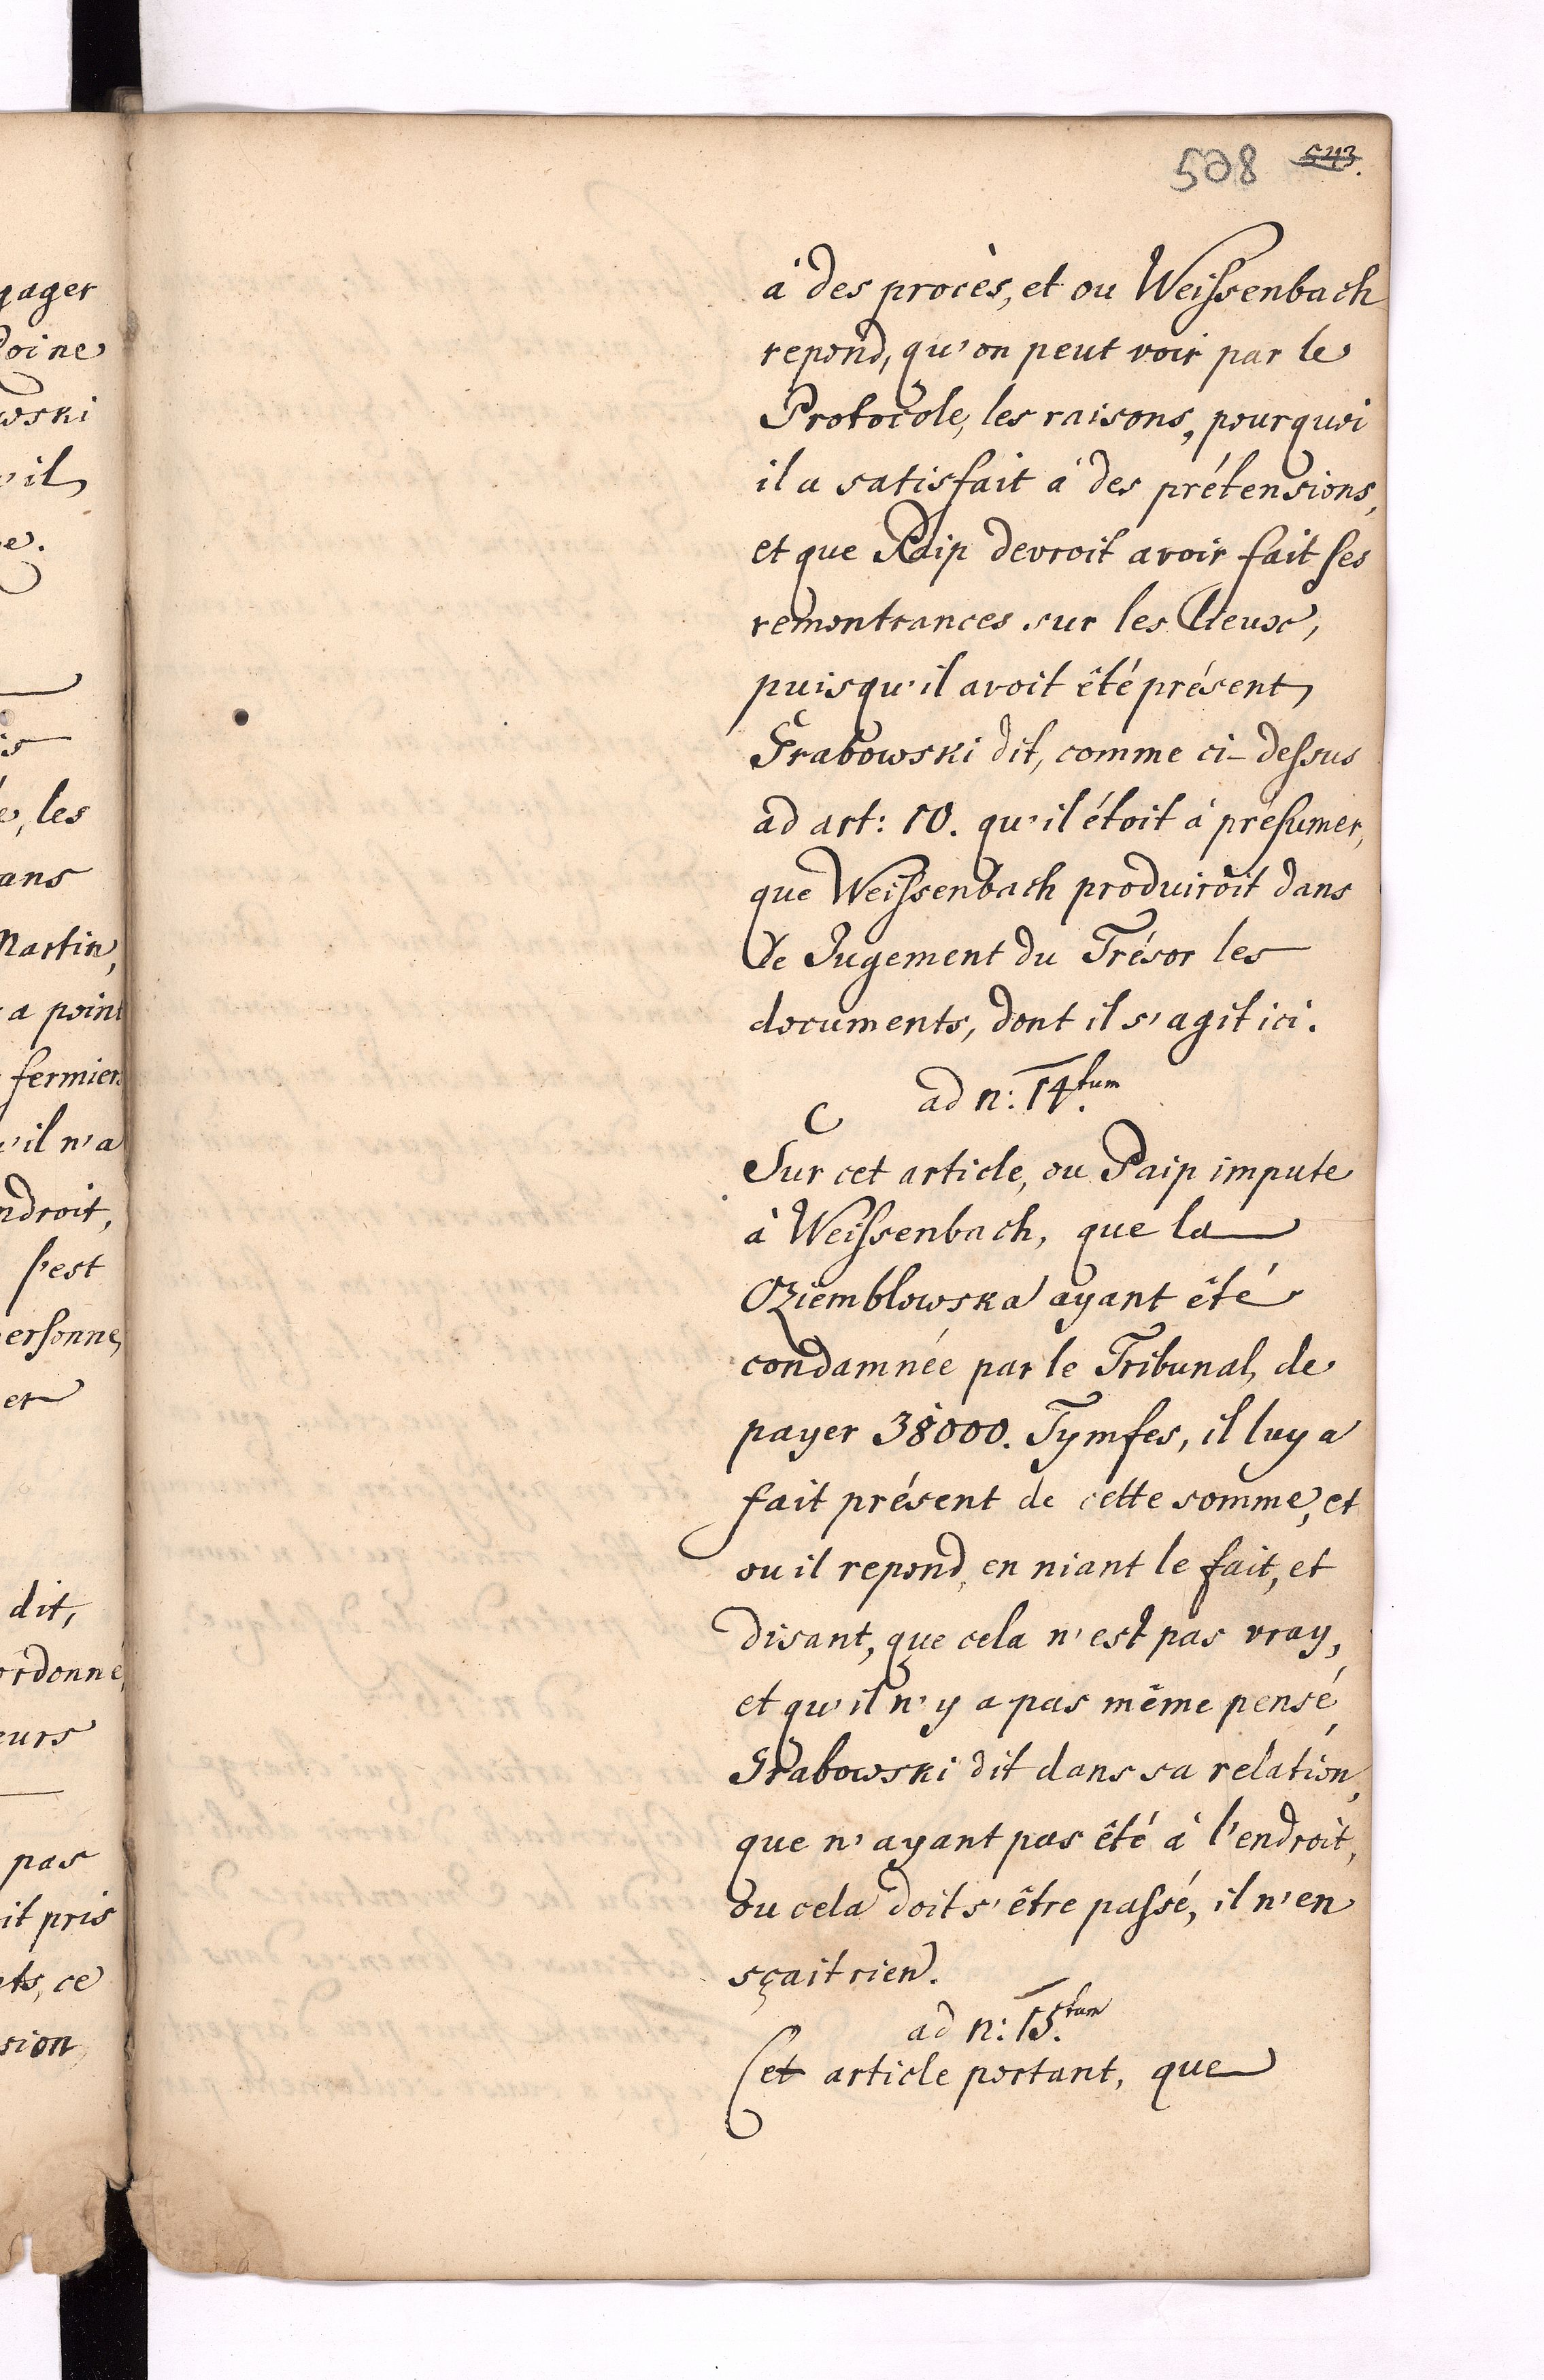 508 543.
à des procès, et ou Weissenbach
repond, qu'on peut voir par le
Protocole, les raisons, pourquoi
il a satisfait à des prétensions,
et que Paip devroit avoir fait ses
remontrances sur les lieux,
puisqu'il avoit êté présent,
Grabowski dit, comme ci-dessus
ad art: 10. qu'il étoit à présumer,
que Weissenbach produiroit dans
le Jugement du Trésor les
documents, dont il s'agit ici.
ad n: 14.tum
Sur cet article, ou Paip impute
à Weissenbach, que la
Oziemblowska ayant êté
condamnée par le Tribunal, de
payer 38000. Tymfes, il luy a
fait présent de cette somme, et
ou il repond, en niant le fait, et
disant, que cela n'est pas vray,
et qu'il n'y a pas même pensé,
Grabowski dit dans sa relation,
que n'ayant pas êté à l'endroit,
ou cela doit s'être passé, il n'en
sçait rien.
ad n: 15.tum
Cet article portant, que
gager
wski
'il
e.
is
e, les
ans
Martin,
a point
fermiers
'il n'a
ndroit,
s'est
ersonne,
er
dit,
ordonné,
eurs
pas
it pris
ts, ce
sion